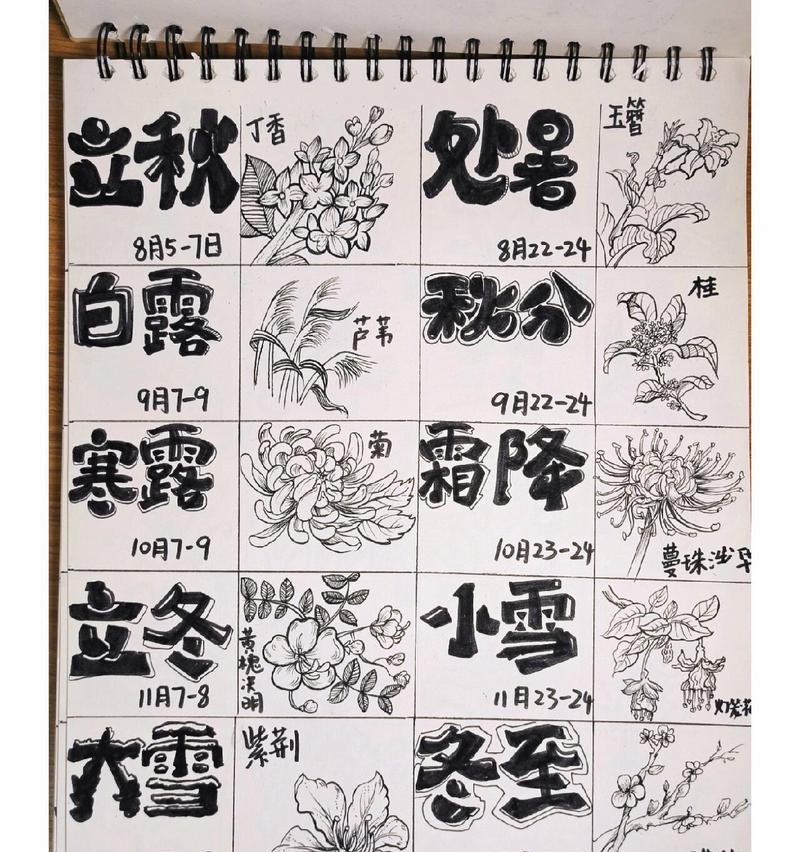 立秋
丁香
8月5-7日
处暑
玉簪
8月22-24
白露
芦苇
9月7-9
秋分
桂
9月22-24
寒露
菊
10月7-9
霜降
10月23-24
蔓珠沙华
立冬
黄槐决明
11月7-8
小雪
11月23-24
灯笼花
大雪
紫荆
冬至